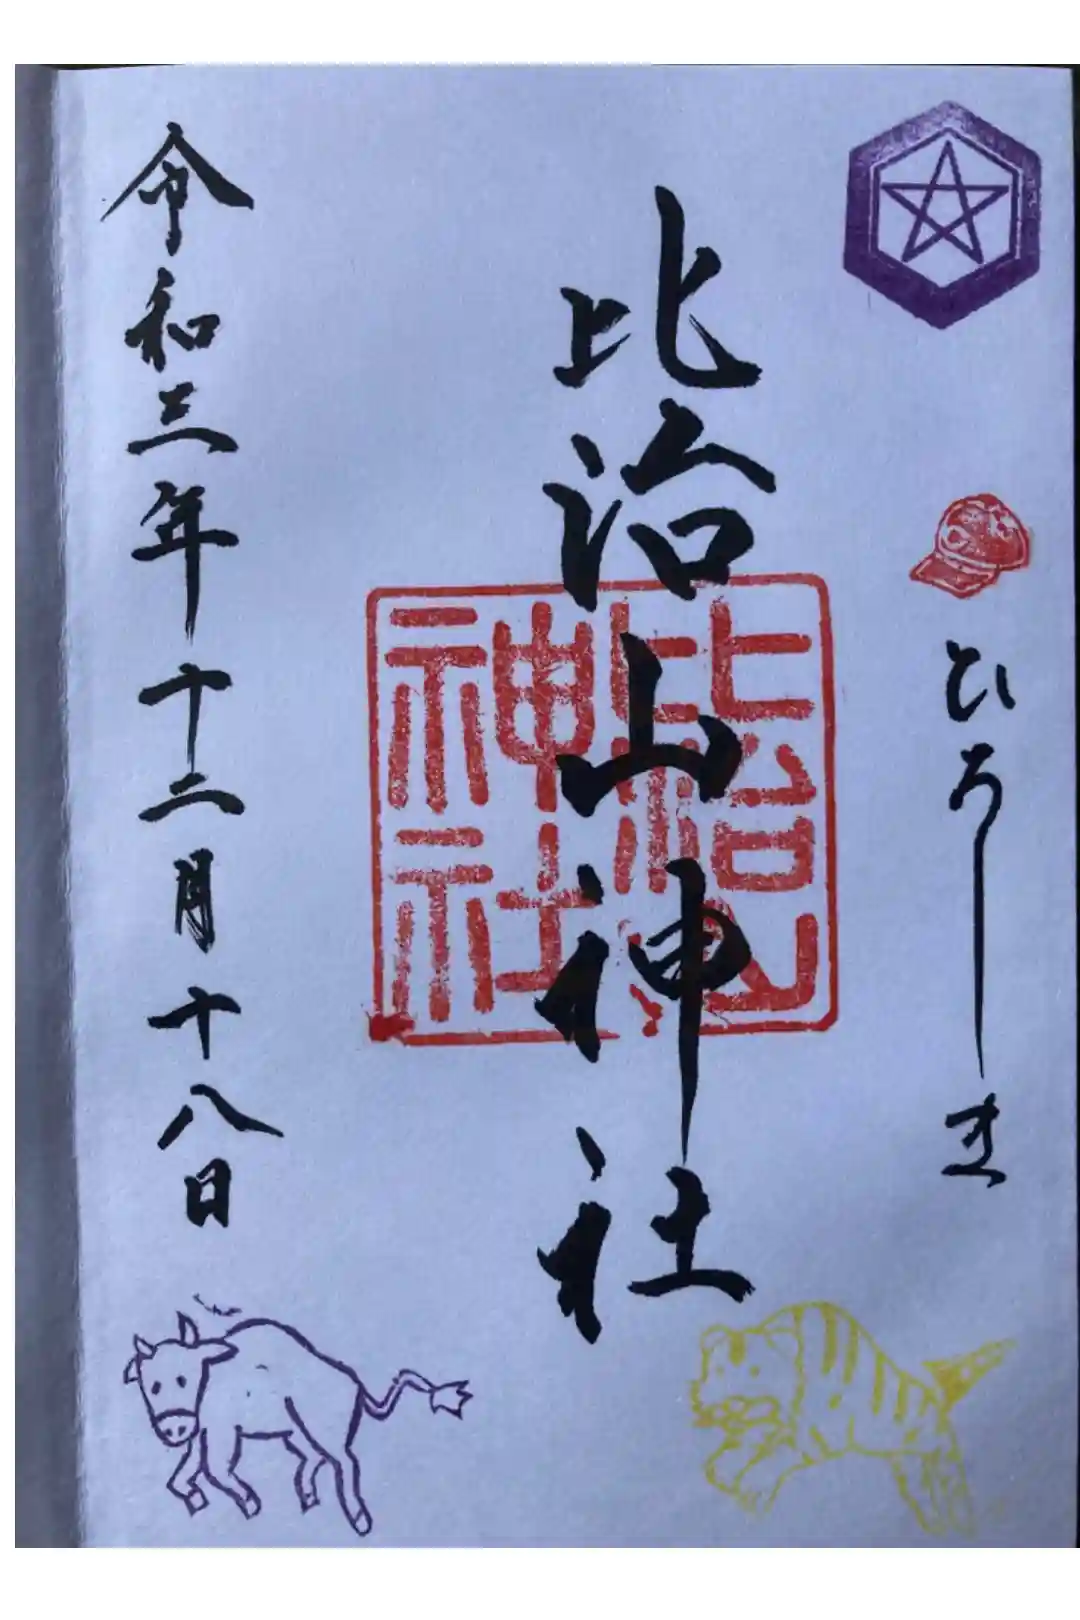 ひろしま
比治山神社
比治山
神社
令和三年十二月十八日